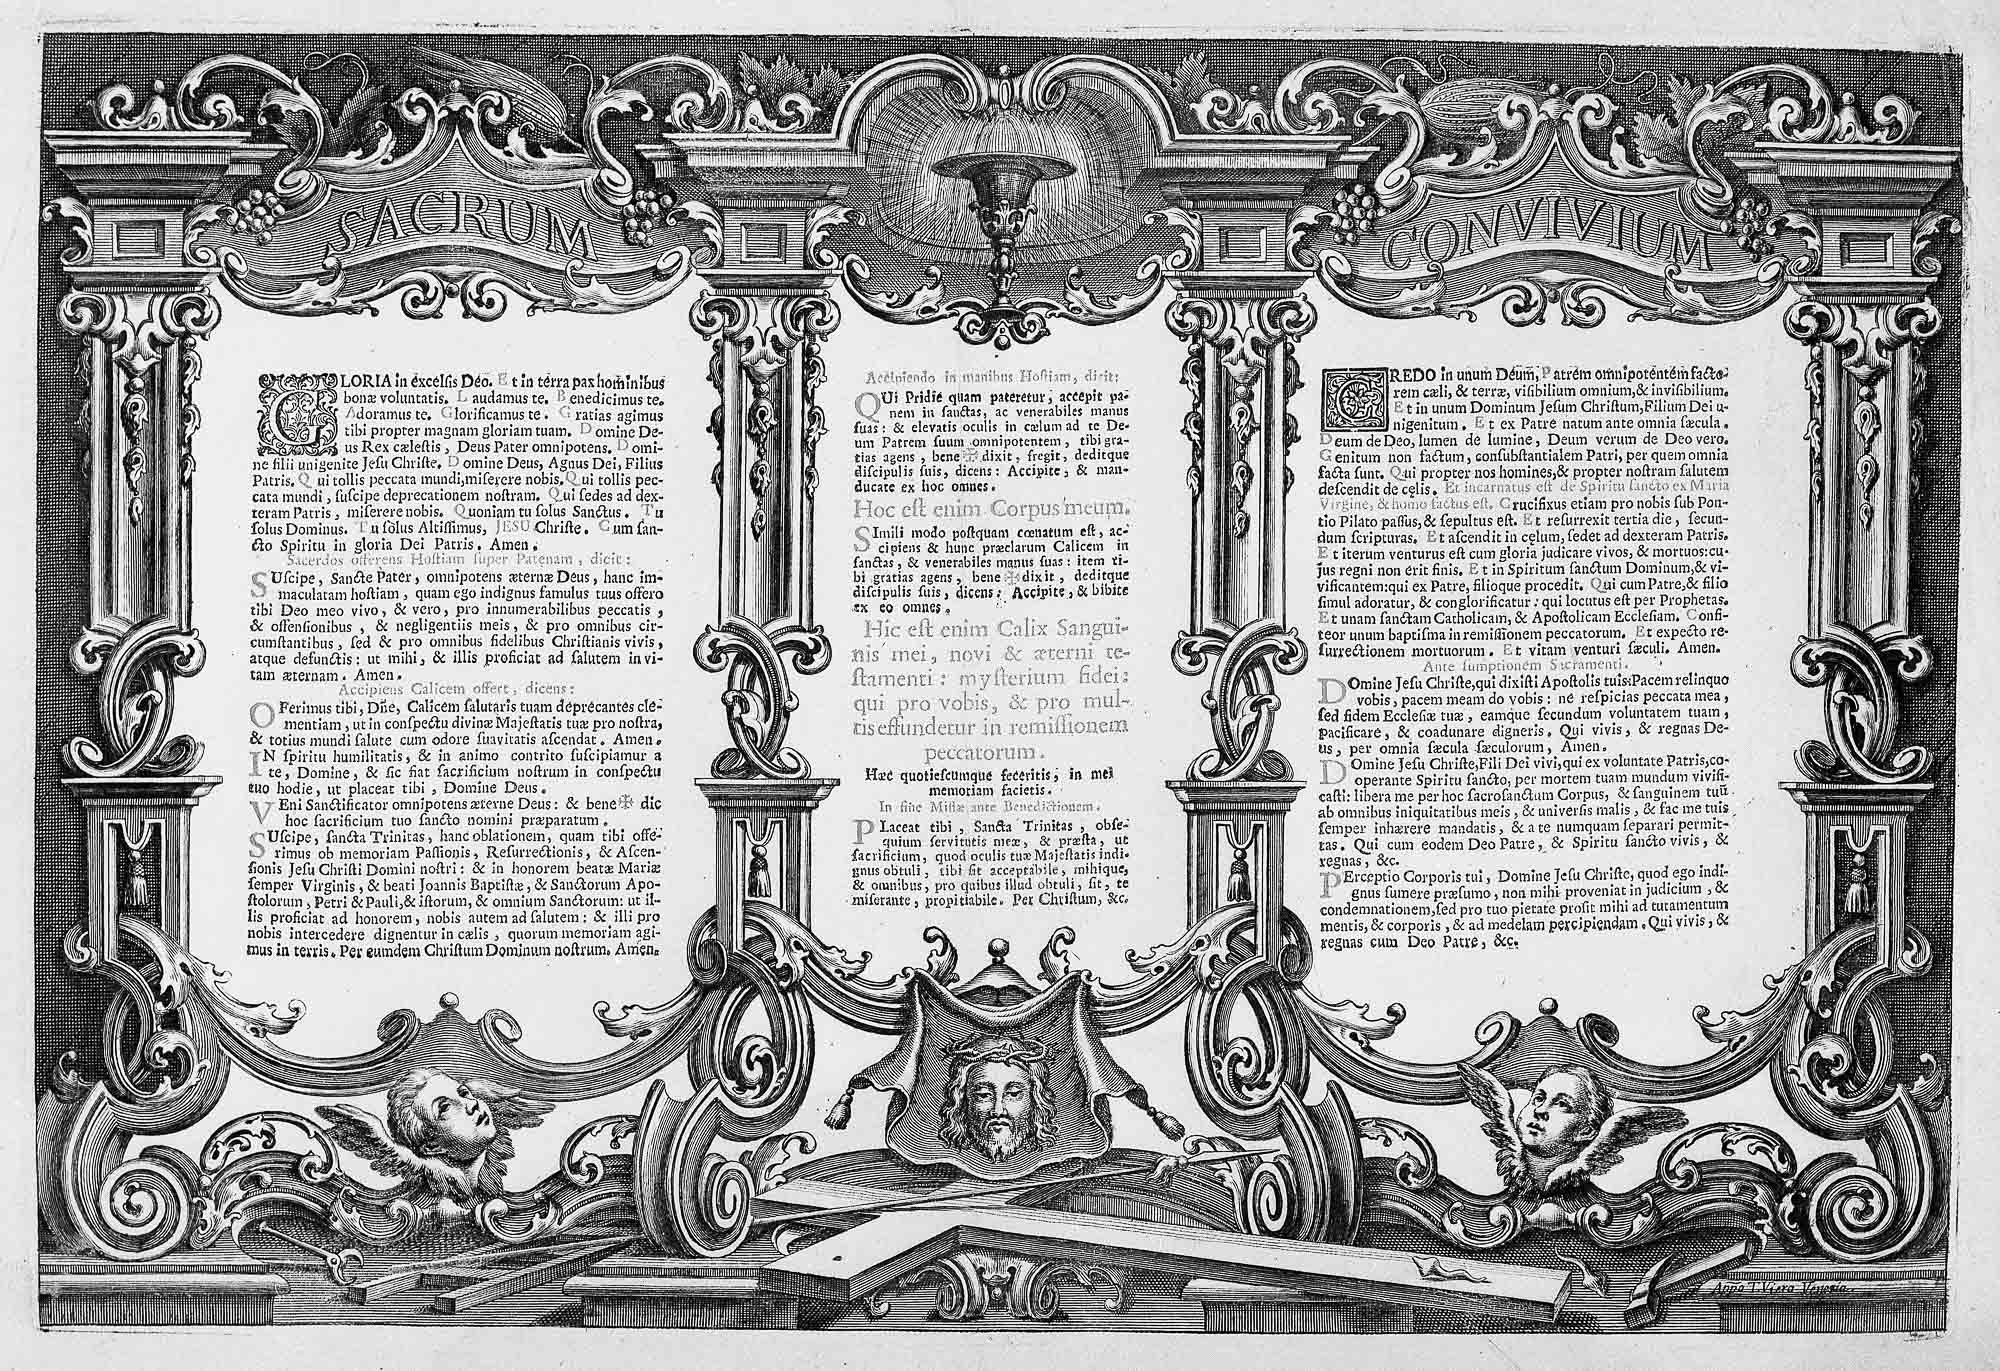 SACRUM
CONVIVIUM
GLORIA in excelsis Deo. Et in terra pax hominibus
bonæ voluntatis. Laudamus te. Benedicimus te.
Adoramus te. Glorificamus te. Gratias agimus
tibi propter magnam gloriam tuam. Domine De-
us Rex cælestis, Deus Pater omnipotens. Domi-
ne fili unigenite Jesu Christe. Domine Deus, Agnus Dei, Filius
Patris. Qui tollis peccata mundi, miserere nobis. Qui tollis pec-
cata mundi, suscipe deprecationem nostram. Qui sedes ad dex-
teram Patris, miserere nobis. Quoniam tu solus Sanctus. Tu
solus Dominus. Tu solus Altissimus, JESU Christe. Cum san-
cto Spiritu in gloria Dei Patris. Amen.
Sacerdos offerens Hostiam super Patenam, dicit:
SUscipe, Sancte Pater, omnipotens æternæ Deus, hanc im-
maculatam hostiam, quam ego indignus famulus tuus offero
tibi Deo meo vivo, & vero, pro innumerabilibus peccatis,
& offensionibus, & negligentiis meis, & pro omnibus cir-
cumstantibus, sed & pro omnibus fidelibus Christianis vivis,
atque defunctis: ut mihi, & illis proficiat ad salutem in vi-
tam æternam. Amen.
Accipiens Calicem offert, dicens:
OFerimus tibi, Dñe, Calicem salutaris tuam deprecantes cle-
mentiam, ut in conspectu divinæ Majestatis tuæ pro nostra,
& totius mundi salute cum odore suavitatis ascendat. Amen.
IN spiritu humilitatis, & in animo contrito suscipiamur a
te, Domine, & sic fiat sacrificium nostrum in conspectu
tuo hodie, ut placeat tibi, Domine Deus.
VEni Sanctificator omnipotens æterne Deus: & bene✠dic
hoc sacrificium tuo sancto nomini præparatum.
SUscipe, sancta Trinitas, hanc oblationem, quam tibi offe-
rimus ob memoriam Passionis, Resurrectionis, & Ascen-
sionis Jesu Christi Domini nostri: & in honorem beatæ Mariæ
semper Virginis, & beati Joannis Baptistæ, & Sanctorum Apo-
stolorum, Petri & Pauli, & istorum, & omnium Sanctorum: ut il-
lis proficiat ad honorem, nobis autem ad salutem: & illi pro
nobis intercedere dignentur in cælis, quorum memoriam agi
mus in terris. Per eumdem Christum Dominum nostrum. Amen.
Accipiendo in manibus Hostiam, dicit:
QUi Pridie quam pateretur, accepit pa-
nem in sanctas, ac venerabiles manus
suas: & elevatis oculis in cælum ad te De-
um Patrem suum omnipotentem, tibi gra-
tias agens, bene✠dixit, fregit, deditque
discipulis suis, dicens: Accipite, & man-
ducate ex hoc omnes.
Hoc est enim Corpus meum.
SImili modo postquam cœnatum est, ac-
cipiens & hunc præclarum Calicem in
sanctas, & venerabiles manus suas: item ti-
bi gratias agens, bene✠dixit, deditque
discipulis suis, dicens: Accipite, & bibite
ex eo omnes.
Hic est enim Calix Sangui-
nis mei, novi & æterni te-
stamenti: mysterium fidei:
qui pro vobis, & pro mul-
tis effundetur in remissionem
peccatorum.
Hæc quotiescumque feceritis, in mei
memoriam facietis.
In fine Missæ ante Benedictionem.
PLaceat tibi, Sancta Trinitas, obse-
quium servitutis meæ, & præsta, ut
sacrificium, quod oculis tuæ Majestatis indi-
gnus obtuli, tibi sit acceptabile, mihique,
& omnibus, pro quibus illud obtuli, sit, te
miserante, propitiabile. Per Christum, &c.
CREDO in unum Deum, Patrem omnipotentem facto-
rem cæli, & terræ, visibilium omnium, & invisibilium.
Et in unum Dominum Jesum Christum, Filium Dei u-
nigenitum. Et ex Patre natum ante omnia sæcula.
Deum de Deo, lumen de lumine, Deum verum de Deo vero.
Genitum non factum, consubstantialem Patri, per quem omnia
facta sunt. Qui propter nos homines, & propter nostram salutem
descendit de cęlis. Et incarnatus est de Spiritu sancto ex Maria
Virgine, & homo factus est. Crucifixus etiam pro nobis sub Pon-
tio Pilato passus, & sepultus est. Et resurrexit tertia die, secun-
dum scripturas. Et ascendit in cęlum, sedet ad dexteram Patris.
Et iterum venturus est cum gloria judicare vivos, & mortuos: cu-
jus regni non erit finis. Et in Spiritum sanctum Dominum, & vi-
vificantem: qui ex Patre, filioque procedit. Qui cum Patre, & filio
simul adoratur, & conglorificatur: qui locutus est per Prophetas.
Et unam sanctam Catholicam, & Apostolicam Ecclesiam. Confi-
teor unum baptisma in remissionem peccatorum. Et expecto re-
surrectionem mortuorum. Et vitam venturi sæculi. Amen.
Ante sumptionem Sacramenti.
DOmine Jesu Christe, qui dixisti Apostolis tuis: Pacem relinquo
vobis, pacem meam do vobis: ne respicias peccata mea,
sed fidem Ecclesiæ tuæ, eamque secundum voluntatem tuam,
pacificare, & coadunare digneris. Qui vivis, & regnas De-
us, per omnia sæcula sæculorum, Amen.
DOmine Jesu Christe, Fili Dei vivi, qui ex voluntate Patris, co-
operante Spiritu sancto, per mortem tuam mundum vivifi-
casti: libera me per hoc sacrosanctum Corpus, & sanguinem tuũ
ab omnibus iniquitatibus meis, & universis malis, & fac me tuis
semper inhærere mandatis, & a te numquam separari permit-
tas. Qui cum eodem Deo Patre, & Spiritu sancto vivis, &
regnas, &c.
PErceptio Corporis tui, Domine Jesu Christe, quod ego indi-
gnus sumere præsumo, non mihi proveniat in judicium, &
condemnationem, sed pro tuo pietate prosit mihi ad tutamentum
mentis, & corporis, & ad medelam percipiendam. Qui vivis, &
regnas cum Deo Patre, &c.
Viero Venezia